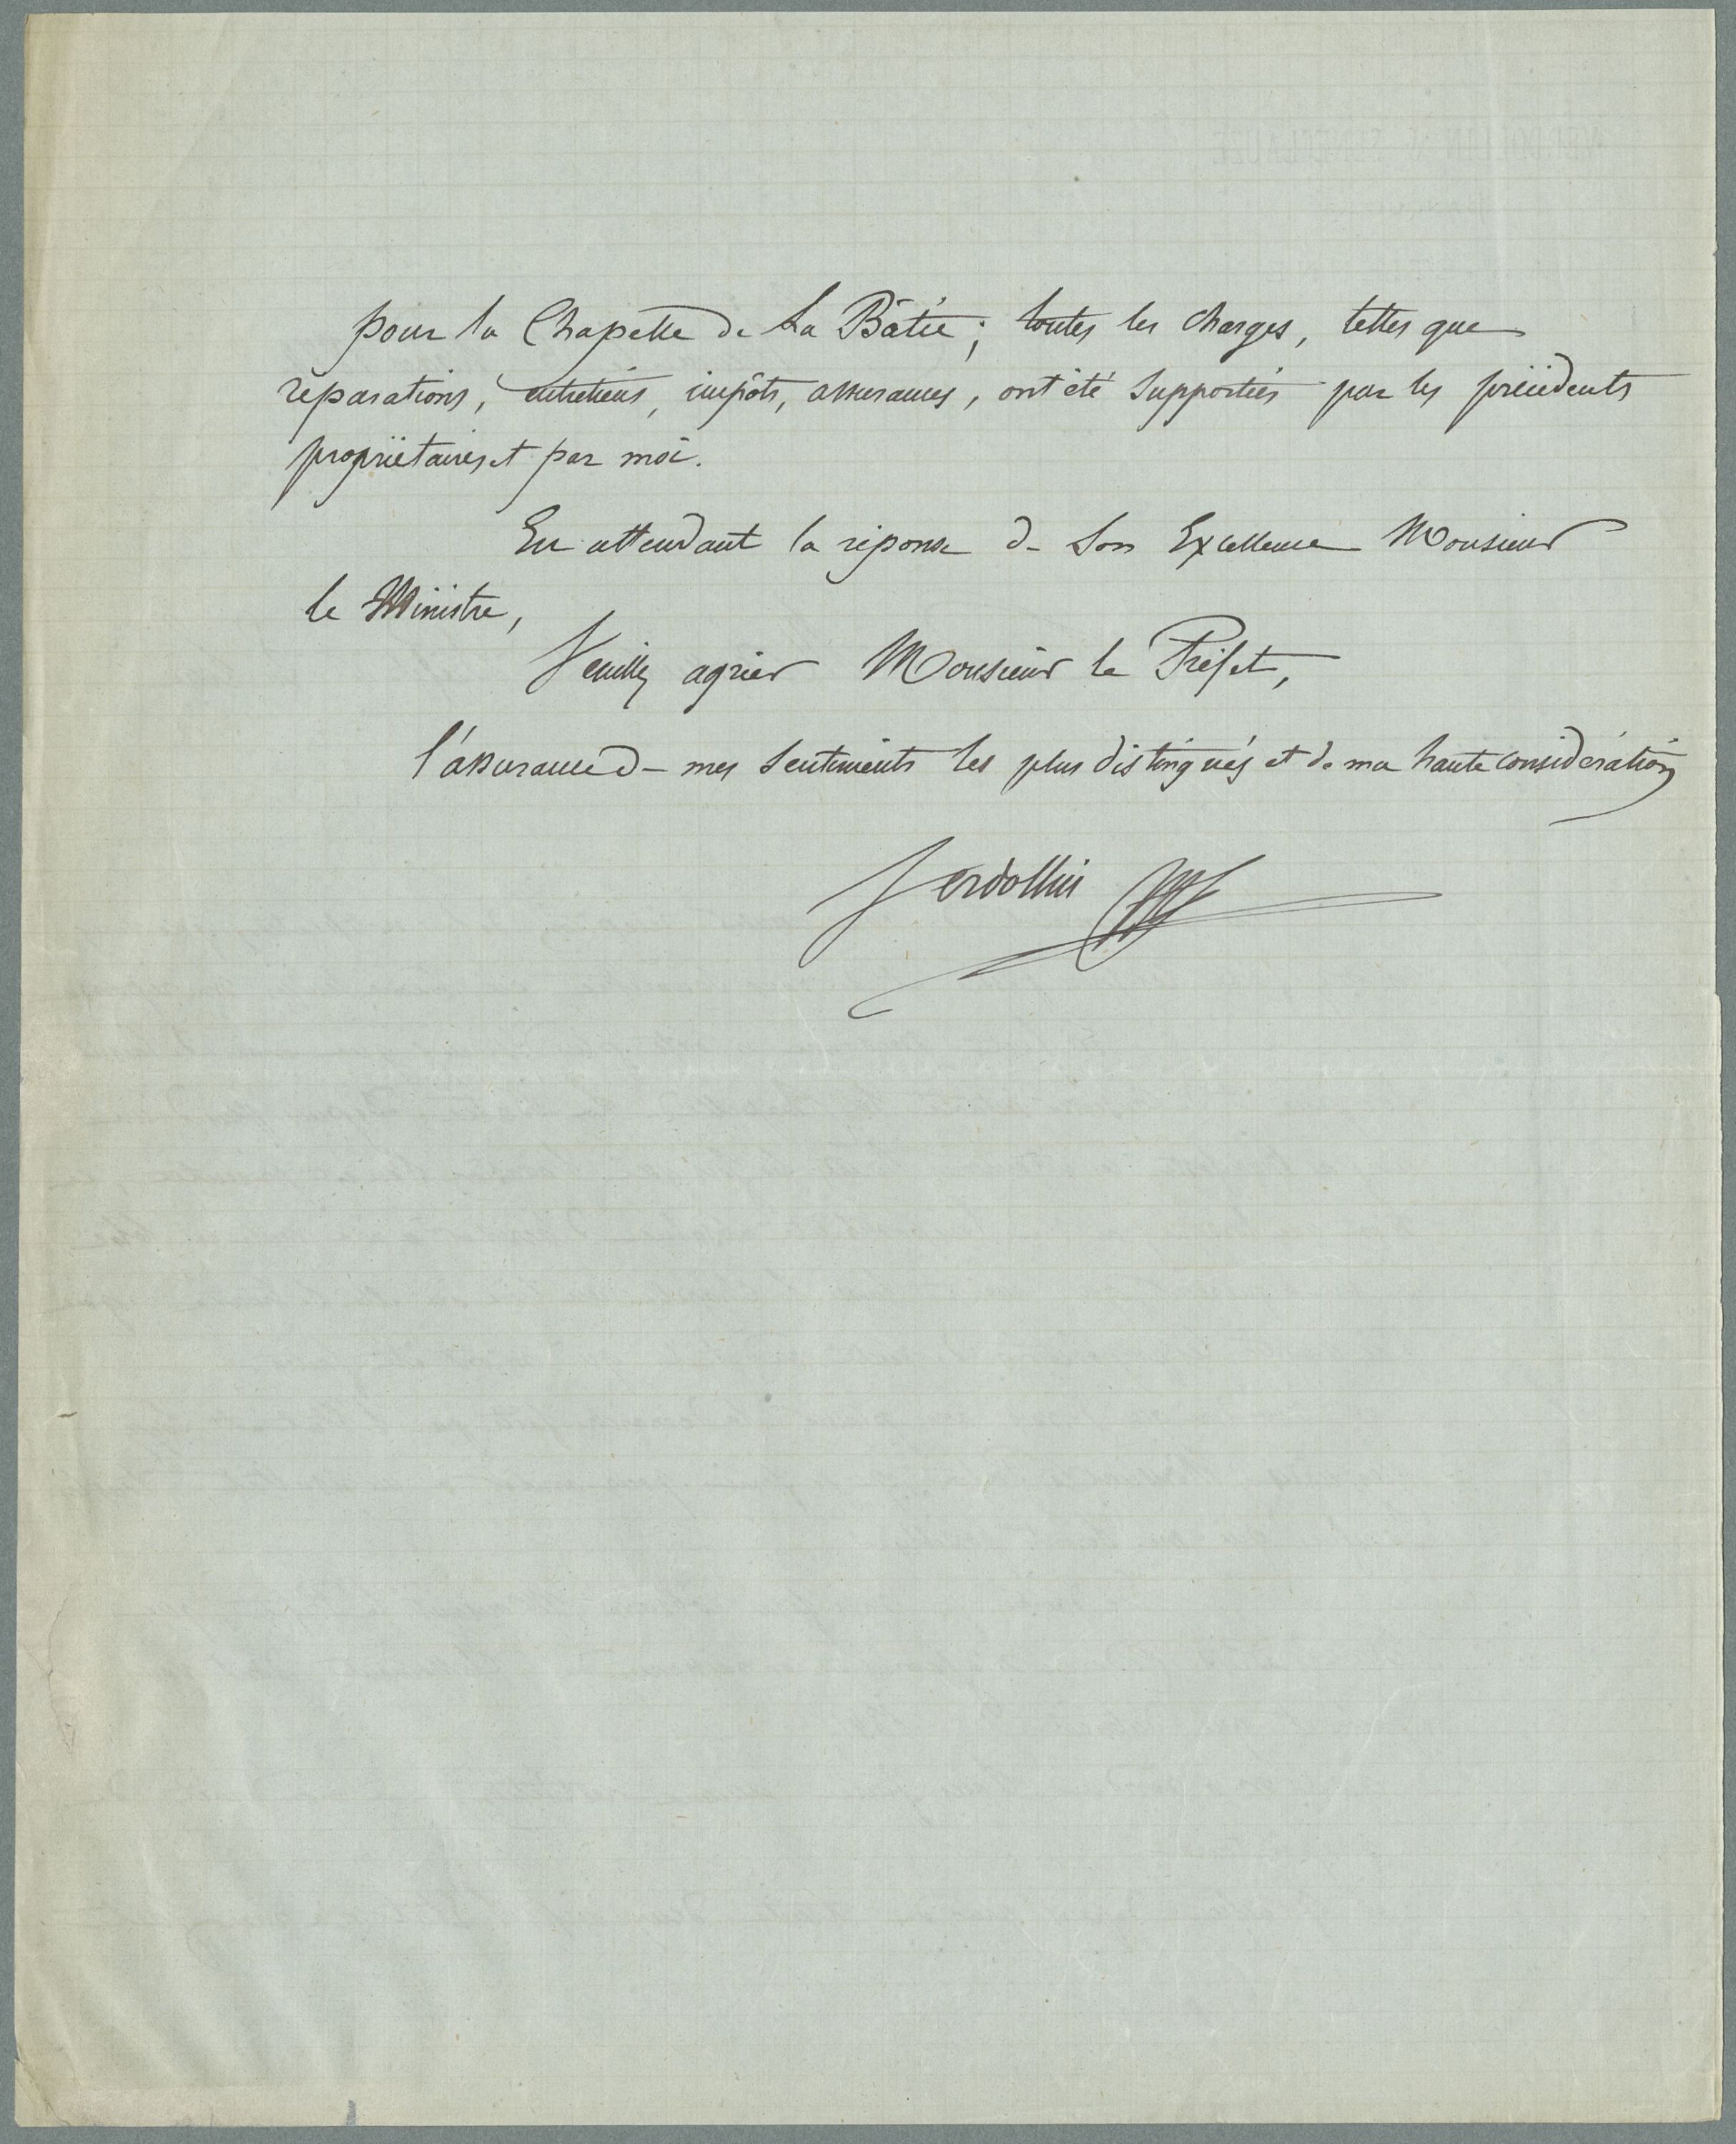 pour la Chapelle de La Bâtie; toutes les charges, telles que
réparations, entretiens, impôts, assurances, ont été supportées par les précédents
propriétaires et par moi.
En attendant la réponse de Son Excellence Monsieur
le Ministre,
Veuillez agréer Monsieur le Préfet,
l'assurance de mes sentiments les plus distingués et de ma haute considération
Verdollin